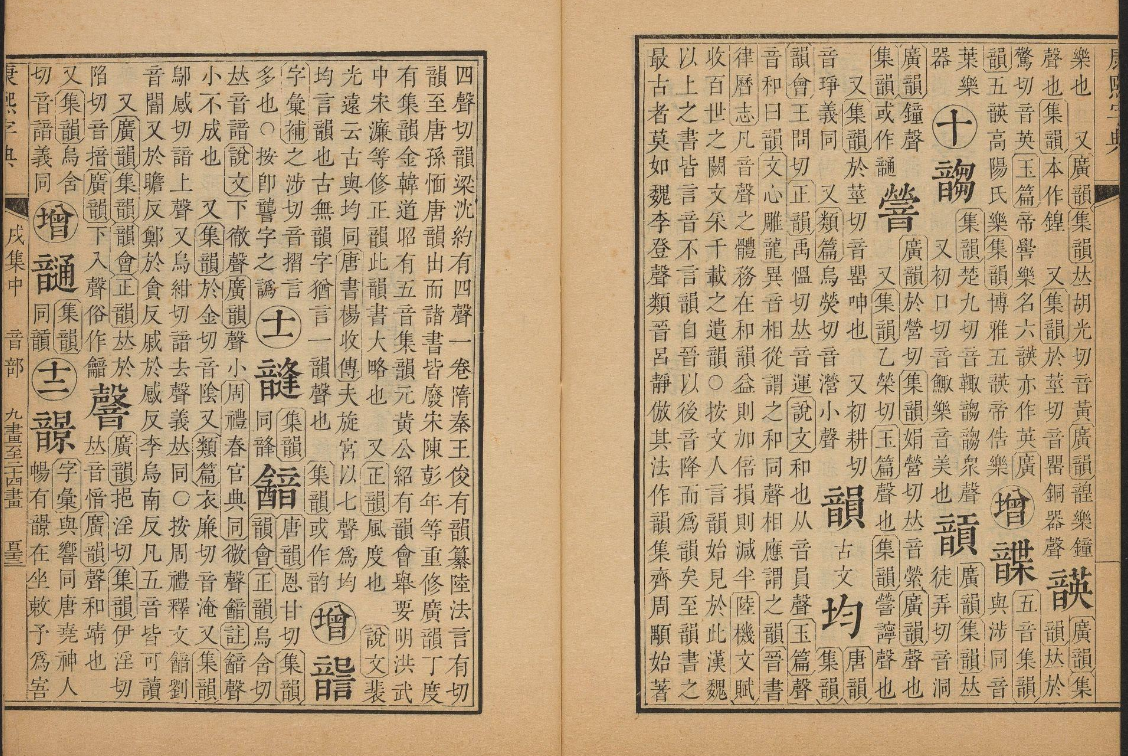 康熙字典
樂也 又廣韻集韻𠀤胡光切音黃廣韻韹樂鐘
聲也集韻本作鍠 又集韻於莖切音罌銅器聲
韺
廣韻集
韻𠀤於
驚切音英玉篇帝嚳樂名六韺亦作英廣
韻五韺高陽氏樂集韻博雅五韺帝俈樂
增
五音集韻
與涉同音
葉樂
器
十
集韻楚九切音䩳謅衆聲
又初口切音鯫樂音美也
廣韻集韻𠀤
徒弄切音洞
廣韻鐘聲
集韻或作
廣韻於營切集韻娟營切𠀤音縈廣韻聲也
又集韻乙榮切玉篇聲也集韻聲也
又集韻於莖切音罌呻也 又初耕切
音琤義同 又類篇烏熒切音瀯小聲
韻
古文
均
唐韻
集韻
韻會王問切正韻禹慍切𠀤音運說文和也从音員聲玉篇聲
音和曰韻文心雕龍異音相從謂之和同聲相應謂之韻晉書
律曆志凡音聲之體務在和韻益則加倍損則減半陸機文賦
收百世之闕文采千載之遺韻○按文人言韻始見於此漢魏
以上之書皆言音不言韻自晉以後音降而爲韻矣至韻書之
最古者莫如魏李登聲類晉呂靜倣其法作韻集齊周顒始著
四聲切韻梁沈約有四聲一卷隋秦王俊有韻纂陸法言有切
韻至唐孫愐唐韻出而諸書皆廢宋陳彭年等重修廣韻丁度
有集韻金韓道昭有五音集韻元黃公紹有韻會舉要明洪武
中宋濂等修正韻此韻書大略也 又正韻風度也 說文裴
光遠云古與均同唐書楊收傳夫旋宮以七聲爲均
均言韻也古無韻字猶言一韻聲也 集韻或作韵
增
字彙補之涉切音摺言
多也○按卽讋字之譌
十一
集韻
同韸
唐韻恩甘切集韻
韻會正韻烏含切
𠀤音諳說文下徹聲廣韻聲小周禮春官典同微聲韽註韽聲
小不成也 又集韻於金切音陰又類篇衣廉切音淹又集韻
鄔感切諳上聲又烏紺切諳去聲義𠀤同○按周禮釋文韽劉
音闇又於瞻反鄭於貪反戚於感反李烏南反凡五音皆可讀
又廣韻集韻韻會正韻𠀤於
陷切音揞廣韻下入聲俗作䶨
廣韻挹淫切集韻伊淫切
𠀤音愔廣韻聲和靖也
又集韻烏含
切音諳義同
增
集韻
同韻
十二
字彙與響同唐堯神人
暢有在坐敕予爲害
康熙字典
戌集中 音部 九畫至十四畫